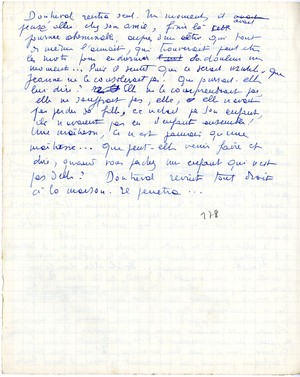 Donterval rentra seul. Un moment, il avait
pensé aller chez son amie, finir là cette
journée abominable, auprès d'un être qui tout
de même l'aimait, qui trouverait peut être
les mots pour endormir sa douleur un
moment... Puis il sentit que ce serait inutile, que
Jeanne ne le consolerait pas. Que pourrait-elle
lui dire ? Elle ne le comprendrait pas,
elle ne souffrait pas, elle, elle n'avait
pas perdu sa fille, ce n'était pas son enfant,
ils n'avaient pas eu d'enfant ensemble.
Une maîtresse, ce n'est jamais qu'une
maîtresse... Que peut-elle venir faire et
dire, quand vous perdez un enfant qui n'est
pas d'elle ? Donterval revint tout droit
à la maison. Il pénétra...
178